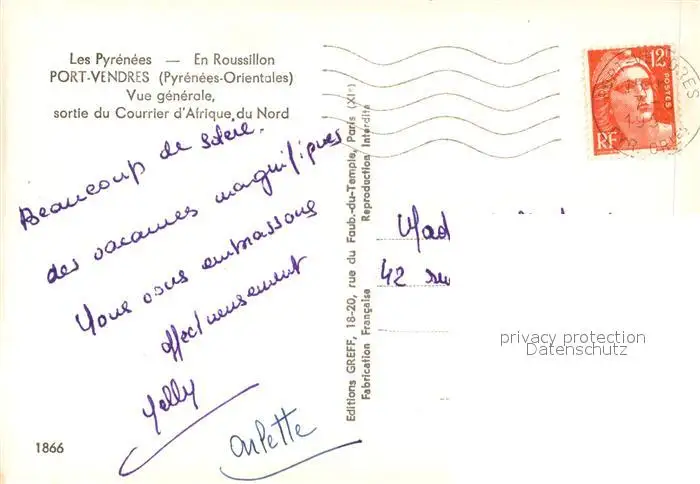 Les Pyrénées — En Roussillon
PORT-VENDRES (Pyrénées-Orientales)
Vue générale,
sortie du Courrier d'Afrique du Nord
Beaucoup de soleil.
des vacances magnifiques
Nous vous embrassons
affectueusement
Nelly
Arlette
1866
Editions GREFF, 18-20, rue du Faub.-du-Temple, Paris (XIe)
Fabrication Française
Reproduction Interdite
12F
POSTES
RF
Mad
42 rue
privacy protection
Datenschutz